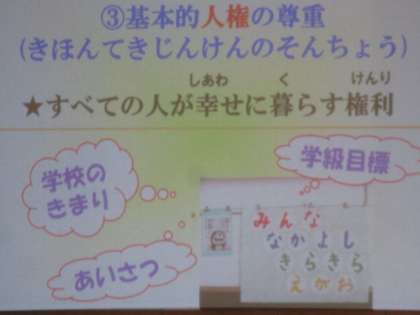 ③基本的人権の尊重
(きほんてきじんけんのそんちょう)
しあわ く けんり
★すべての人が幸せに暮らす権利
学校の
きまり
学級目標
あいさつ
みんな
なかよし
きらきら
えがお